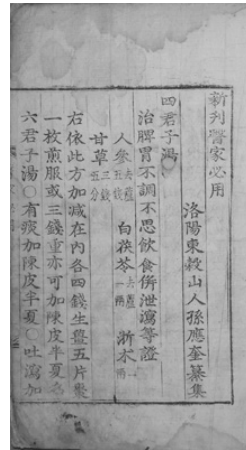 新刋醫家必用
洛陽東穀山人孫應奎纂集
四君子湯
治脾胃不調不思飲食倂泄瀉等證
人參去蘆五錢 白茯苓去蘆一兩 浙术一兩
甘草三錢五分
右依此方加减在内各四錢生薑五片棗
一枚煎服或三錢重亦可加陳皮半夏名
六君子湯○有痰加陳皮半夏○吐瀉加